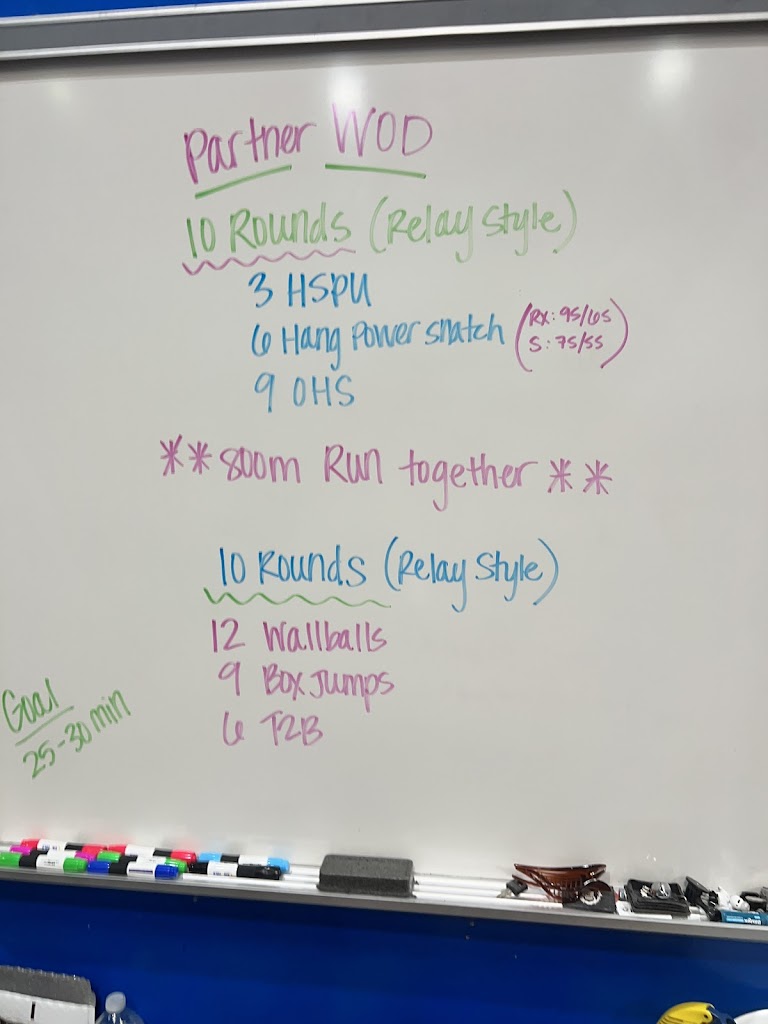 Partner WOD
10 Rounds (Relay Style)
3 HSPU
6 Hang Power snatch (RX: 95/65
S: 75/55)
9 OHS
**800m Run together**
10 Rounds (Relay Style)
12 Wallballs
9 Box Jumps
6 T2B
Goal
25-30 min